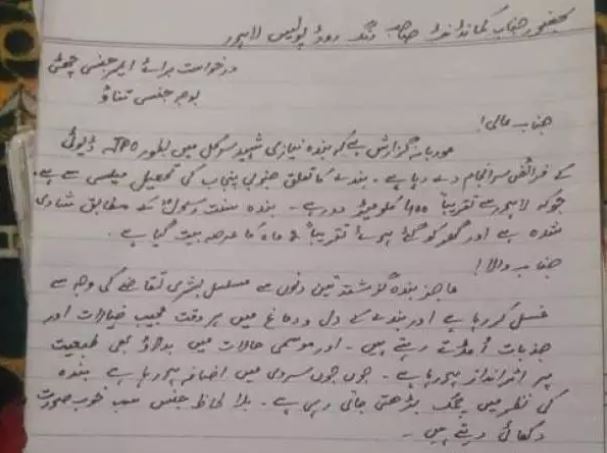 بحضور جناب کمانڈنٹ صاحب رنگ روڈ پولیس لاہور
درخواست برائے ایمرجنسی چھٹی
بوجہ جنسی تناؤ
جناب عالی!
مودبانہ گزارش ہے کہ بندہ نیازی شہید سرکل میں بطور JPO ڈیوٹی
کے فرائض سرانجام دے رہا ہے۔ بندے کا تعلق جنوبی پنجاب کی تحصیل میلسی سے ہے۔
جوکہ لاہور سے تقریباً 400 کلومیٹر دور ہے۔ بندہ سنت رسول کے مطابق شادی
شدہ ہے اور گھر کو گئے ہوئے تقریباً 2 ماہ کا عرصہ بیت گیا ہے۔
جناب والا!
عاجز بندہ گزشتہ تین دنوں سے مسلسل بشری تقاضے کی وجہ سے
غسل کر رہا ہے اور بندے کے دل و دماغ میں ہر وقت عجیب خیالات اور
جذبات امڈتے رہتے ہیں۔ اور موسمی حالات میں بدلاؤ بھی طبیعت
پر اثر انداز ہو رہا ہے۔ جوں جوں سردی میں اضافہ ہو رہا ہے بندہ
کی نظر میں چمک بڑھتی جاتی رہی ہے۔ بلا لحاظ جنس سب خوبصورت
دکھائی دیتے ہیں۔